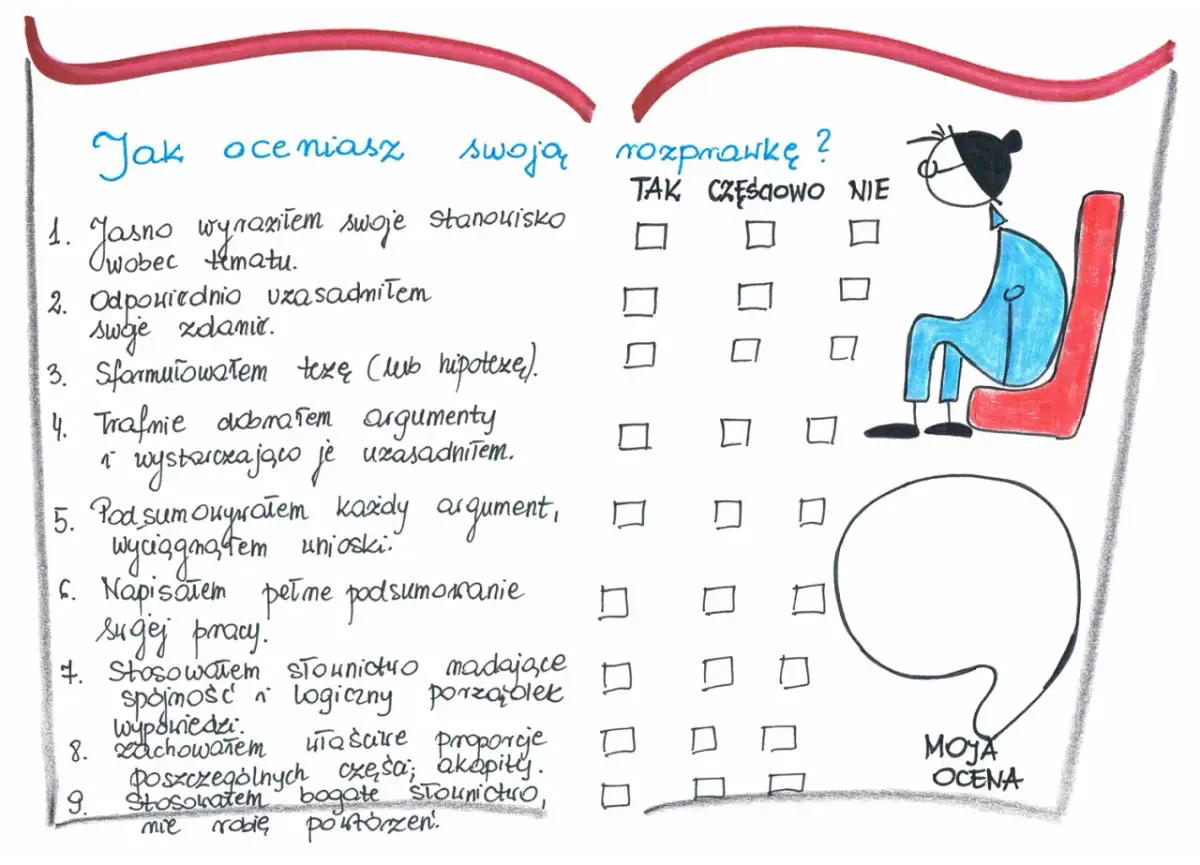 Jak oceniasz swoją rozprawkę?
TAK CZĘŚCIOWO NIE
1. Jasno wyraziłem swoje stanowisko
wobec tematu.
2. Odpowiednio uzasadniłem
swoje zdanie.
3. Sformułowałem tezę (lub hipotezę).
4. Trafnie dobrałem argumenty
i wystarczająco je uzasadniłem.
5. Podsumowywałem każdy argument,
wyciągnąłem wnioski.
6. Napisałem pełne podsumowanie
swojej pracy.
7. Stosowałem słownictwo nadające
spójność i logiczny porządek
wypowiedzi.
8. Zachowałem właściwe proporcje
poszczególnych części; akapity.
9. Stosowałem bogate słownictwo,
nie robię powtórzeń.
MOJA
OCENA